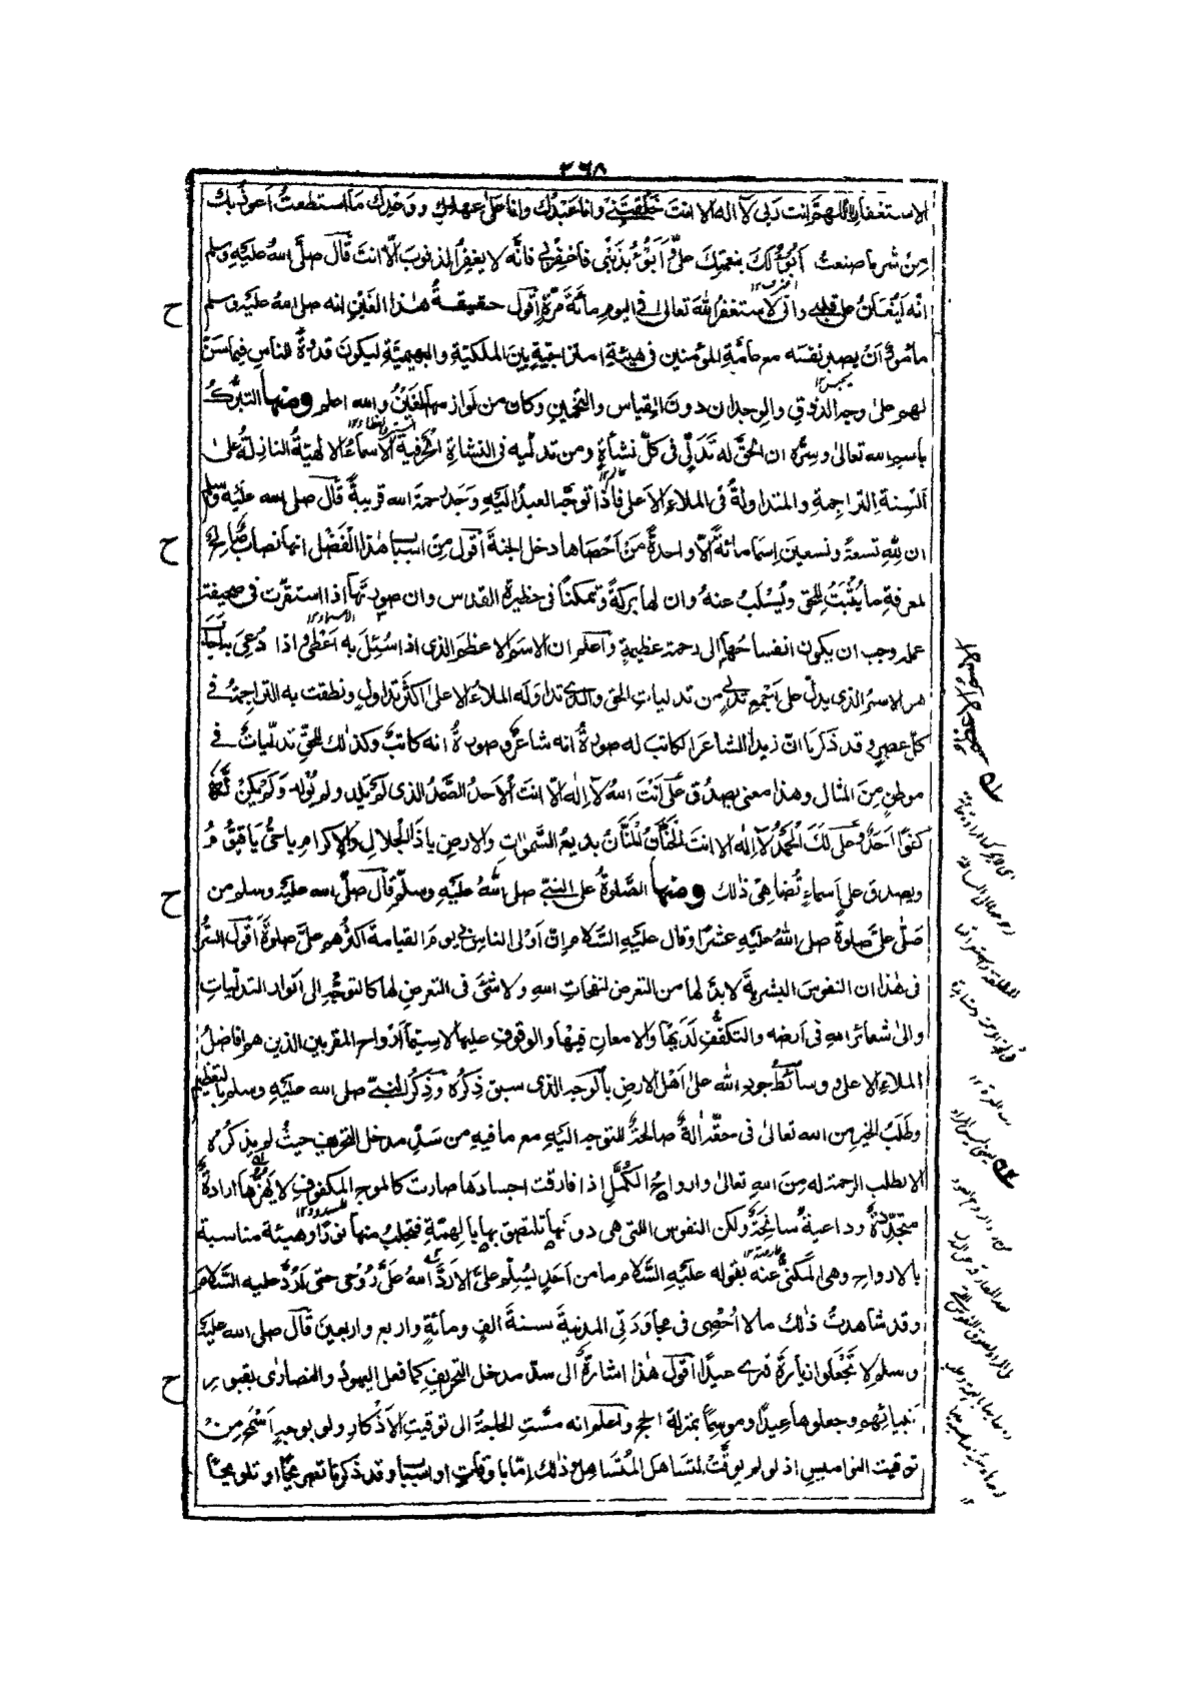 ٢٦٨
الاستغفار اللهم انت ربى لا اله الا انت خلقتنى وانا عبدك وانا على عهدك ووعدك ما استطعت اعوذ بك
من شر ما صنعت ابوء لك بنعمتك علىّ و ابوء بذنبى فاغفرلى فانه لا يغفر الذنوب الا انت قال صلى الله عليه وسلم
انه ليغان على قلبى وانى لاستغفر الله تعالى فى اليوم مائة مرة اقول حقيقة هذا الغين انه صلى الله عليه وسلم
مأمور ان يصبر نفسه مع عامة المؤمنين فى هيئة امتزاجية بين الملكية والبهيمية ليكون قدوة للناس فيما سن
لهم على وجه الذوق والوجدان دون القياس والتخمين وكان من لوازمها الغين والله اعلم ومنها التبرك
باسم الله تعالى وسره ان الحق له تدلى فى كل نشأة ومن تدليه فى النشاة الحرفية الاسماء الالهية النازلة على
السنة التراجمة والمتداولة فى الملاء الاعلى فاذا توجه العبد اليه وجد رحمة الله قريبة قال صلى الله عليه وسلم
ان لله تسعة وتسعين اسما مائة الا واحدة من احصاها دخل الجنة اقول من اسباب هذا الفضل انها نصاب صالح
لمعرفة ما يثبت للحق ويسلب عنه وان لها بركة وتمكنا فى حظيرة القدس وان صورتها اذا استقرت فى صحيفة
عمله وجب ان يكون انفساحها الى رحمة عظيمة واعلم ان الاسم الاعظم الذى اذا سئل به اعطى واذا دعى به اجاب
هو الاسم الذى يدل على اجمع تدلى من تدليات الحق والذى تداوله الملاء الاعلى اكثر تداول ونطقت به التراجمة فى
كل عصر وقد ذكرنا ان زيدا الشاعر الكاتب له صورة انه شاعر وصورة انه كاتب وكذلك للحق تدليات فى
موطن من المثال وهذا معنى يصدق على انت الله لا اله الا انت الاحد الصمد الذى لم يلد ولم يولد ولم يكن له
كفوا احد وعلى لك الحمد لا اله الا انت الحنان المنان بديع السموات والارض يا ذا الجلال والاكرام يا حى يا قيوم
ويصدق على اسماء تضاهى ذلك ومنها الصلوة على النبى صلى الله عليه وسلم قال صلى الله عليه وسلم من
صلى على صلوة صلى الله عليه عشرا وقال عليه السلام ان اولى الناس بى يوم القيامة اكثرهم على صلوة اقول السر
فى هذا ان النفوس البشرية لا بد لها من التعرض لنفحات الله ولا شئ فى التعرض لها كالتوجه الى انوار التدليات
والى شعائر الله فى ارضه والتكفف لديها والامعان فيها والوقوف عليها لا سيما ارواح المقربين الذين هم افاضل
الملاء الاعلى ووسائط جود الله على اهل الارض بالوجه الذى سبق ذكره وذكر النبى صلى الله عليه وسلم بالتعظيم
وطلب الخير من الله تعالى فى حقه آلة صالحة للتوجه اليه مع ما فيه من سد مدخل التحريف حيث لم يذكره
الا بطلب الرحمة له من الله تعالى وارواح الكمل اذا فارقت اجسادها صارت كالموج المكفوف لا يهزها ارادة
متجددة وداعية سانحة ولكن النفوس التى هى دونها تلتصق بها بالهمة فتجلب منها نورا وهيئة مناسبة
بالارواح وهى المكنى عنه بقوله عليه السلام ما من احد يسلم على الا رد الله على روحى حتى ارد عليه السلام
وقد شاهدت ذلك ما لا احصى فى مجاورتى المدينة سنة الف ومائة واربع واربعين قال صلى الله عليه
وسلم لا تجعلوا زيارة قبرى عيدا اقول هذا اشارة الى سد مدخل التحريف كما فعل اليهود والنصارى بقبور
انبيائهم وجعلوها عيدا وموسما بمنزلة الحج واعلم انه مست الحاجة الى توقيت الاذكار ولو بوجه اسمح من
توقيت النواميس اذ لو لم يوقت لتساهل المتساهل وذلك اما باوقات او اسباب وقد ذكرنا تصريحا او تلويحا
ح
ح
ح
ح